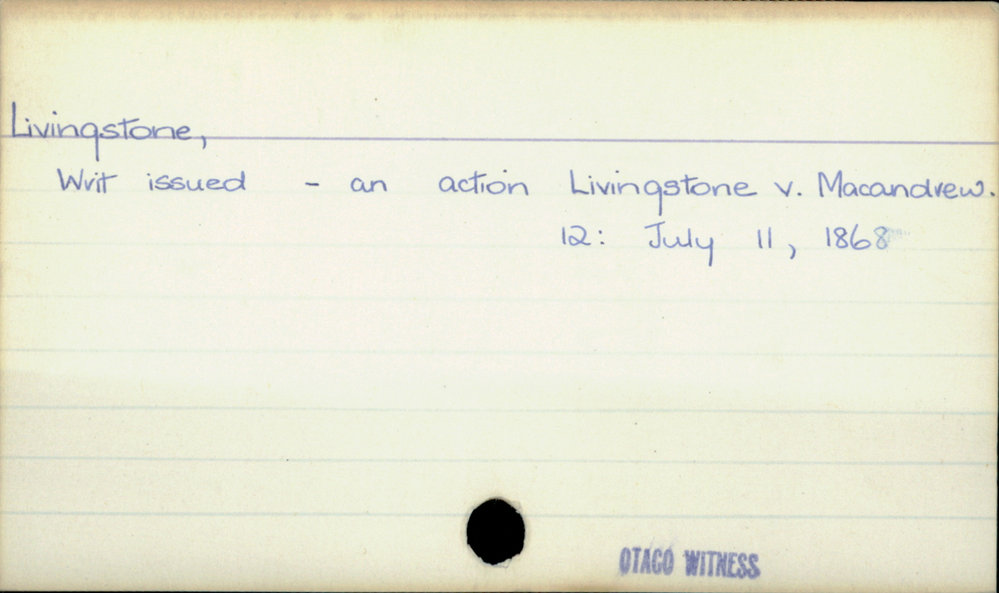 Livingstone,
Writ issued - an action Livingstone v. Macandrew.
12: July 11, 1868
OTAGO WITNESS